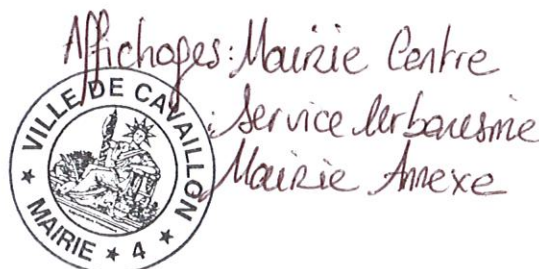 Affichages: Mairie Centre
: Service Urbanisme
Mairie Annexe
VILLE DE CAVAILLON
★ MAIRIE ★ 4 ★